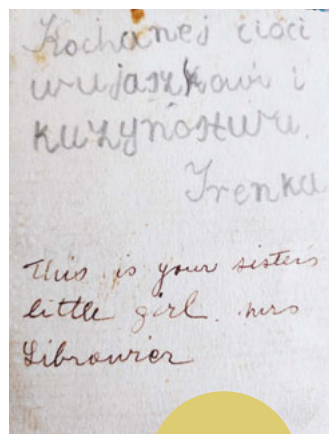 Kochanej cioci
wujaszkowi i
kuzynostwu.
Irenka
This is your sisters
little girl. mrs
Librowicz